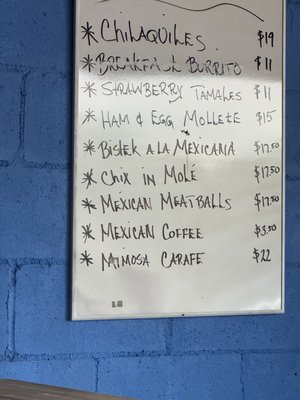 * CHILAQUILES $19
* BREAKFAST BURRITO $11
* STRAWBERRY TAMALES $11
* HAM & EGG MOLLETE $15
* BISTEK A LA MEXICANA $17.50
* CHIX IN MOLÉ $17.50
* MEXICAN MEATBALLS $17.50
* MEXICAN COFFEE $3.50
* MIMOSA CARAFE $22